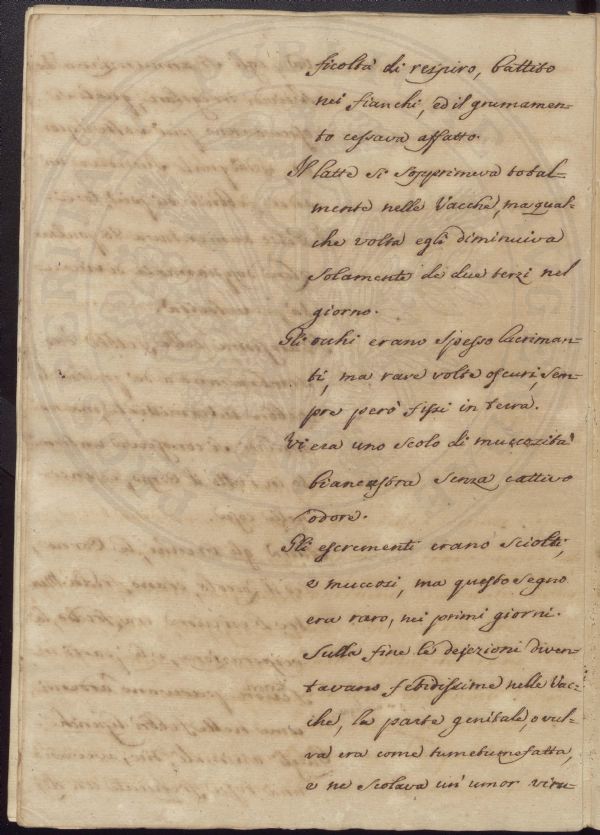 ficoltà di respiro, battito
nei fianchi, ed il grumamen-
to cessava affatto.
Il latte si sopprimeva total-
mente nelle Vacche, ma qual-
che volta egli diminuiva
solamente de due terzi nel
giorno.
Gli occhi erano spesso lacriman-
ti, ma rare volte oscuri, sem-
pre però fissi in terra.
Vi era uno scolo di muccozità
biancastra senza cattivo
odore.
Gli escrementi erano sciolti,
e muccosi, ma questo segno
era raro, nei primi giorni.
Sulla fine le dejezioni diven-
tavano fetidissime nelle Vac-
che, la parte genitale, o vul-
va era come tumebunefatta,
e ne scolava un' umor viru-